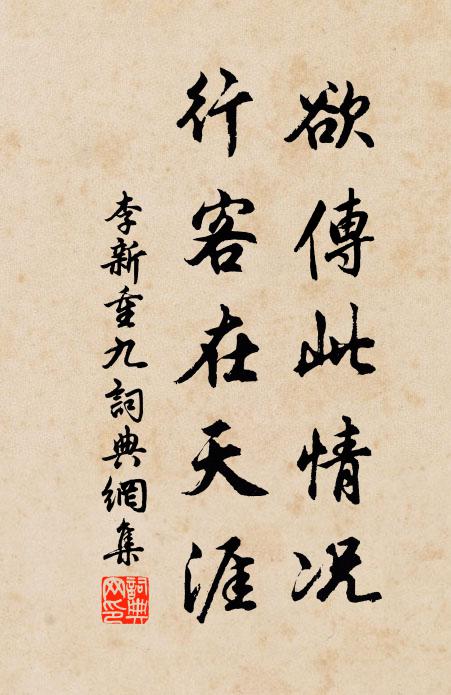 欲傳此情況
行客在天涯
李新重九詞典網集
詞典網印